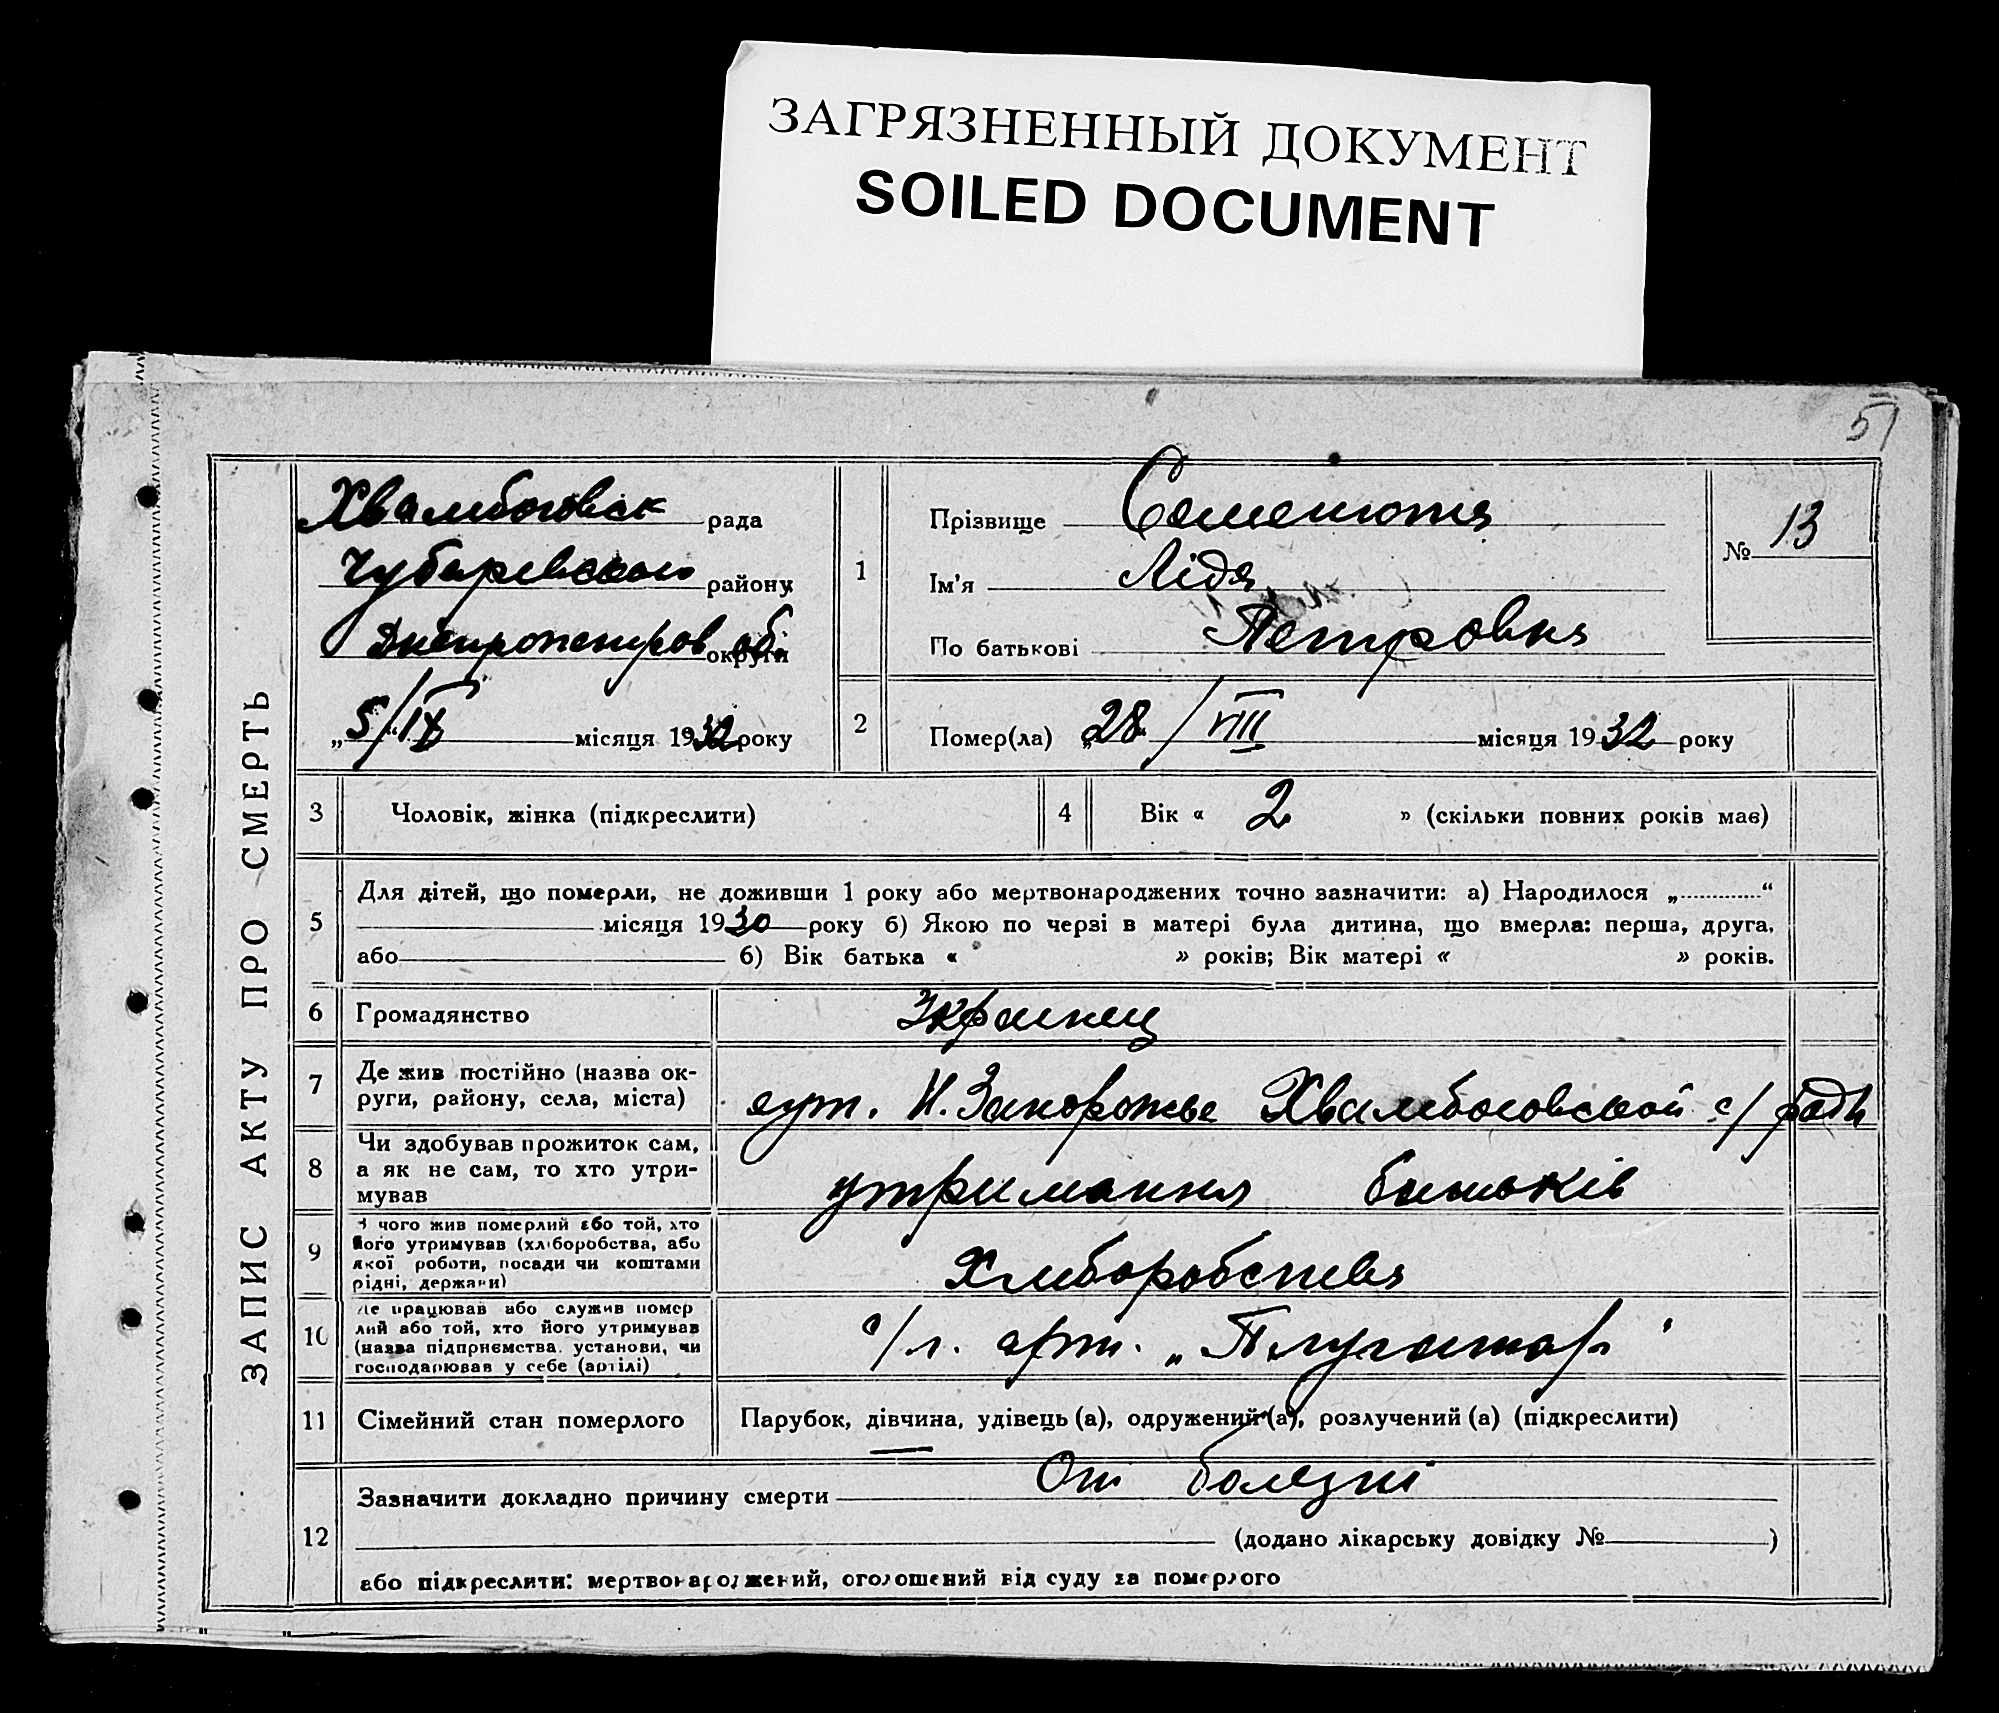 ЗАГРЯЗНЕННЫЙ ДОКУМЕНТ
SOILED DOCUMENT
51
ЗАПИС АКТУ ПРО СМЕРТЬ
Хвалибоговск рада
Чубаревского району
Днепропетров об. округи
„5/IX“ місяця 1932 року
1
Прізвище Семенютя
Ім'я Лідя
По батькові Петровня
№ 13
2
Помер(ла) „28/VIII місяця 1932 року
3 Чоловік, жінка (підкреслити)
4 Вік « 2 » (скільки повних років має)
5 Для дітей, що померли, не доживши 1 року або мертвонароджених точно зазначити: а) Народилося „............“
місяця 1930 року б) Якою по черзі в матері була дитина, що вмерла: перша, друга,
або б) Вік батька « » років; Вік матері « » років.
6 Громадянство Украинец
7 Де жив постійно (назва ок-
руги, району, села, міста)
хут. Н. Запорожье Хвалибоговской с/ради
8 Чи здобував прожиток сам,
а як не сам, то хто утри-
мував
утримання батьків
9 З чого жив померлий або той, хто
його утримував (хліборобства, або
якої роботи, посади чи коштами
рідні, держави)
Хлиборобства
10 Де працював або служив помер
лий або той, хто його утримував
(назва підприємства, установи, чи
господарював у себе (артілі)
с/г. арт. „Плугатар"
11 Сімейний стан померлого Парубок, дівчина, удівець (а), одружений (а), розлучений (а) (підкреслити)
12 Зазначити докладно причину смерти От болезні
(додано лікарську довідку № )
або підкреслити: мертвонароджений, оголошений від суду за померлого